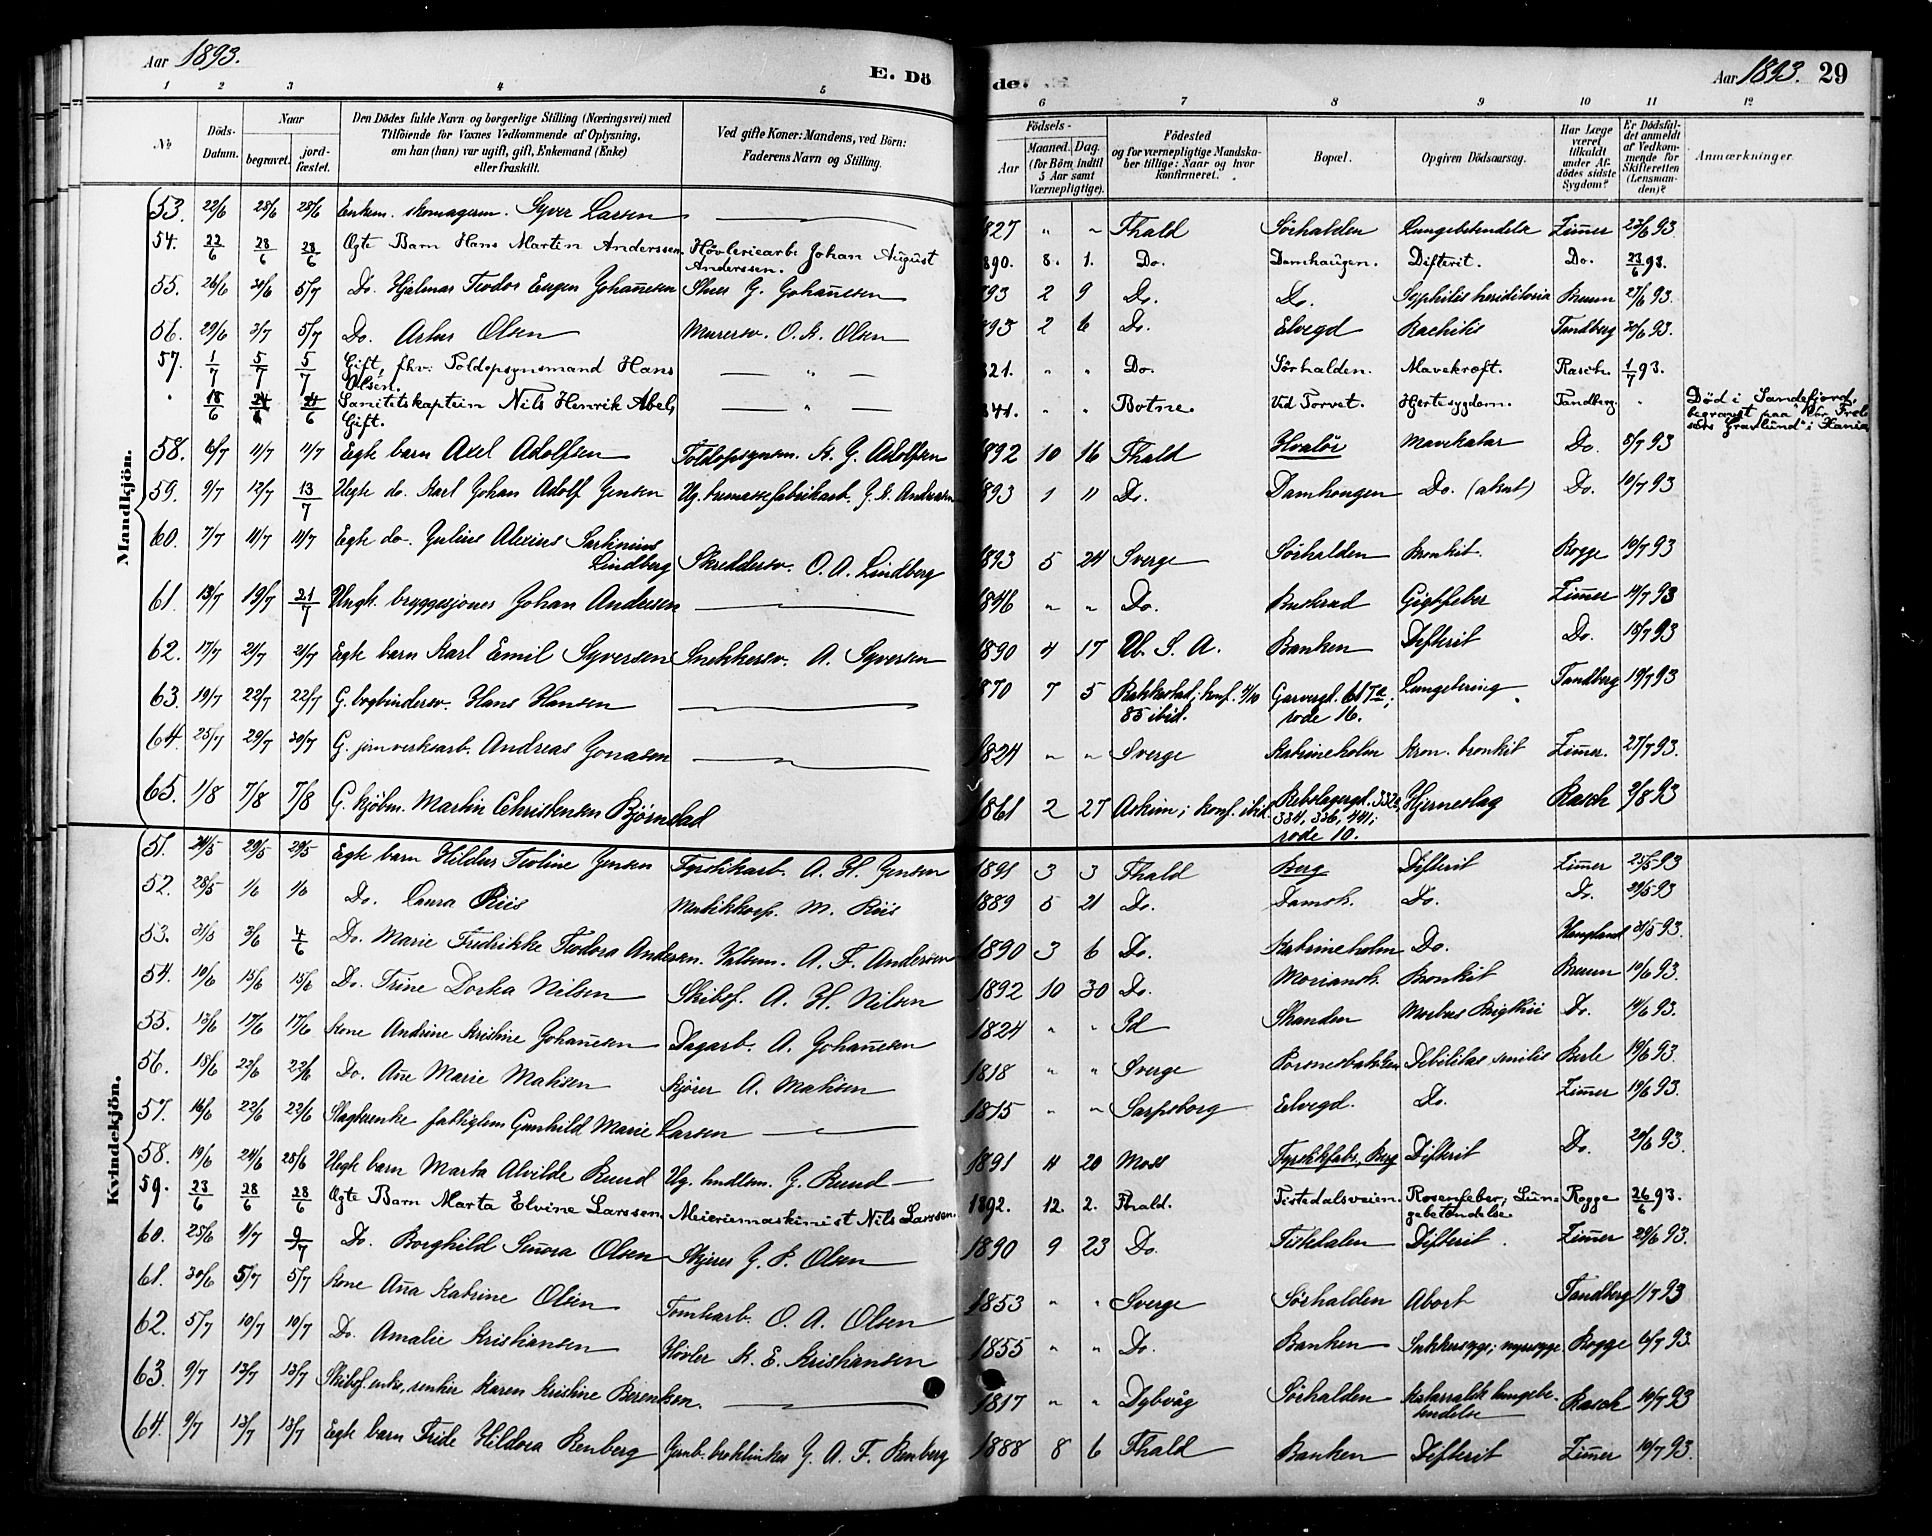 Aar 1893.
E. Dö
de
Aar 1893. 29
1 2 3 4 5 6 7 8 9 10 11 12
No
Döds-Datum.
Naar
begravet.
jord-fæstet.
Den Dödes fulde Navn og borgerlige Stilling (Næringsvei) med
Tilföiende for Voxnes Vedkommende af Oplysning,
om han (hun) var ugift, gift, Enkemand (Enke)
eller fraskilt.
Ved gifte Koner: Mandens, ved Börn:
Faderens Navn og Stilling.
Födsels-
Aar
Maaned. Dag.
(for Börn indtil
5 Aar samt
Værnepligtige).
Födested
og for værnepligtige Mandska-
ber tillige: Naar og hvor
konfirmeret.
Bopæl.
Opgiven Dödsaarsag.
Har Læge
været
tilkaldt
under Af-
dödes sidste
Sygdom?
Er Dödsfal-
det anmeldt
af Vedkom-
mende for
Skifteretten
(Lensman-
den)?
Anmærkninger.
Mandkjön.
53. 22/6 28/6 28/6 Enkem. skomagerm. Syver Larsen 1827 " " Fhald Sörhalden Lungebetendelse Zimer 23/6 93.
54. 22/6 28/6 28/6 Ægte Barn Hans Martin Anderssen Høvleriearb. Johan August Anderssen. 890. 8. 1. Do. Damhaugen. Difterit. Do. 23/6 93.
55. 26/6 30/6 5/7 Do. Hjalmar Teodor Eugen Johañesen Skues G. Johañesen 93 2 9 Do. Do. Syphilis hereditaria Bruun 27/6 93.
56. 29/6 3/7 5/7 Do. Artur Olsen Murersv. O. K. Olsen 93 2 6 Do. Elvegd Rachitis Tandberg 30/6 93.
57. 1/7 5/7 5/7 Gift, fhv. Toldopsynsmand Hans Olsen. " 821. " " Do. Sörhalden. Mavekræft. Rasch. 1/7 93.
" 18/6 24/6 24/6 Sanitetskaptein Nils Henrik Abel, Gift. " 841. " " Botne. Ved Torvet. Hjertesygdom. Tandberg. " Död i Sandefjord, begravet paa "Vor Frelsers Gravlund" i Kania
58. 6/7 11/7 11/7 Egte barn Axel Adolfsen Toldopsynsm. K. G. Adolfsen 1892 10 16 Fhald Hvalör Mavekatar Do. 8/7 93
59. 9/7 12/7 13/7 Uegte do. Karl Johan Adolf Jensen Ug. træmassefabrikarb. G. E. Andersen 893 1 11 Do. Damhougen Do. (akut) Do. 10/7 93
60. 7/7 11/7 11/7 Egte do. Julius Alexius Lindberg Skreddersv. O. A. Lindberg 1893 5 24 Sverge Sörhalden Bronkit. Rogge 10/7 93
61. 13/7 19/7 21/7 Ungk. bryggesjouer Johan Andersen 1846 " " Do. Buskrud Gigtfeber Zimer 14/7 93
62. 17/7 21/7 21/7 Egte barn Karl Emil Syversen Snekkersv. A. Syversen 1890 4 17 U. S. A. Banken Difterit Do. 18/7 93
63. 19/7 22/7 22/7 G. bogbindersv. Hans Hansen 1870 7 5 Rakkestad; konf. 4/10 85 ibid. Garvergd. 61 7a; rode 16. Lungetæring. Tandberg 19/7 93
64. 25/7 29/7 30/7 G. jernverksarb. Andreas Jonasen 1824 " " Sverge Katrineholm Kron. bronkit Zimer. 27/7 93.
65. 1/8 7/8 7/8 G. kjöbm. Martin Christensen Björnstad 1861 2 27 Askim; konf. ibid. Rebslagergd. 332a, 334, 336, 441; rode 10. Hjerneslag Rasch 2/8 93
Kvindekjön.
51. 24/5 29/5 29/5 Egte barn Hildur Teoline Jensen Fyrstikarb. A. H. Jensen 1891 3 3 Fhald Berg Difterit Zimer 25/5 93
52. 28/5 1/6 1/6 Do. Laura Riis Musikkorp. M. Riis 1889 5 21 Do. Damsk. Do. Do. 29/5 93
53. 31/5 3/6 4/6 Do. Marie Fredrikke Teodora Andersen. Valsem. A. F. Andersen 1890 3 6 Do. Katrineholm Do. Haugland 31/5 93.
54. 10/6 15/6 15/6 Do. Trine Dorka Nilsen Skibsf. A. H. Nilsen 1892 10 30 Do. Moriansk. Bronkit Bruun 10/6 93.
55. 13/6 17/6 17/6 Kone Andrine Kristine Johañesen Dagarb. A. Johañesen 1824 " " Id Skanden Morbus Brigthii Do. 14/6 93.
56. 18/6 22/6 22/6 Do. Añe Marie Mathsen Kjörer A. Mathsen 1818 " " Sverge Debilitas senilis Berle 19/6 93.
57. 16/6 22/6 22/6 Slagterenke fattiglem Gunhild Marie Larsen 1815 " " Sarpsborg Elvegd. Do. Zimer 19/6 93.
58. 19/6 24/6 25/6 Uegte barn Marta Alvilde Ruud Ug. hudlem. G. Ruud 1891 11 20 Moss Fyrstikfabr., Berg Difterit Do. 20/6 93.
59. 23/6 28/6 28/6 Ægte Barn Marta Elvine Larssen. Meieriemaskinist Nils Larssen. 1892. 12. 2. Fhald. Tistedalsveien. Rosenfeber; Lungebetændelse. Rogge 26/6 93.
60. 25/6 4/7 9/7 Do. Borghild Señora Olsen Skjues G. P. Olsen 1890 9 23 Do. Tistedalen Difterit Zimer 29/6 93.
61. 30/6 5/7 5/7 Kone Aña Katrine Olsen Tomtearb. O. A. Olsen 1853 " " Sverge Sörhalden Abort Tandberg 1/7 93
62. 5/7 10/7 10/7 Do. Amalie Kristiansen Hövler K. E. Kristiansen 1855 " " Do. Banken Sukkersyge; nyresyge Rogge 6/7 93.
63. 9/7 13/7 13/7 Skibsf. enke, rentier Karen Kristine Berentsen. 1817 " " Dybvåg Sörhalden Katarralsk lungebetendelse Rasch 10/7 93
64. 9/7 13/7 13/7 Egte barn Fride Hildora Renberg G. A. F. Renberg 1888 8 6 Fhald Banken Difterit Zimer 10/7 93.